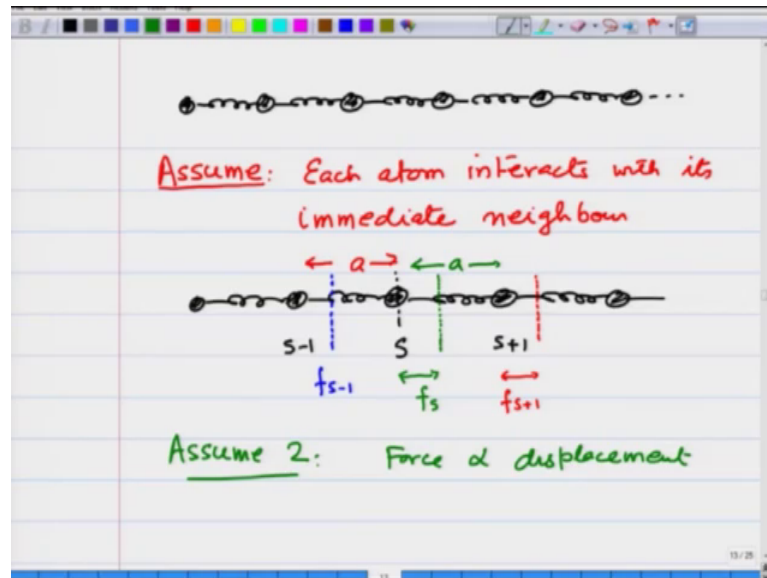 Assume: Each atom interacts with its
immediate neighbour
a a
s-1 s s+1
fs-1 fs fs+1
Assume 2: Force α displacement
13/25